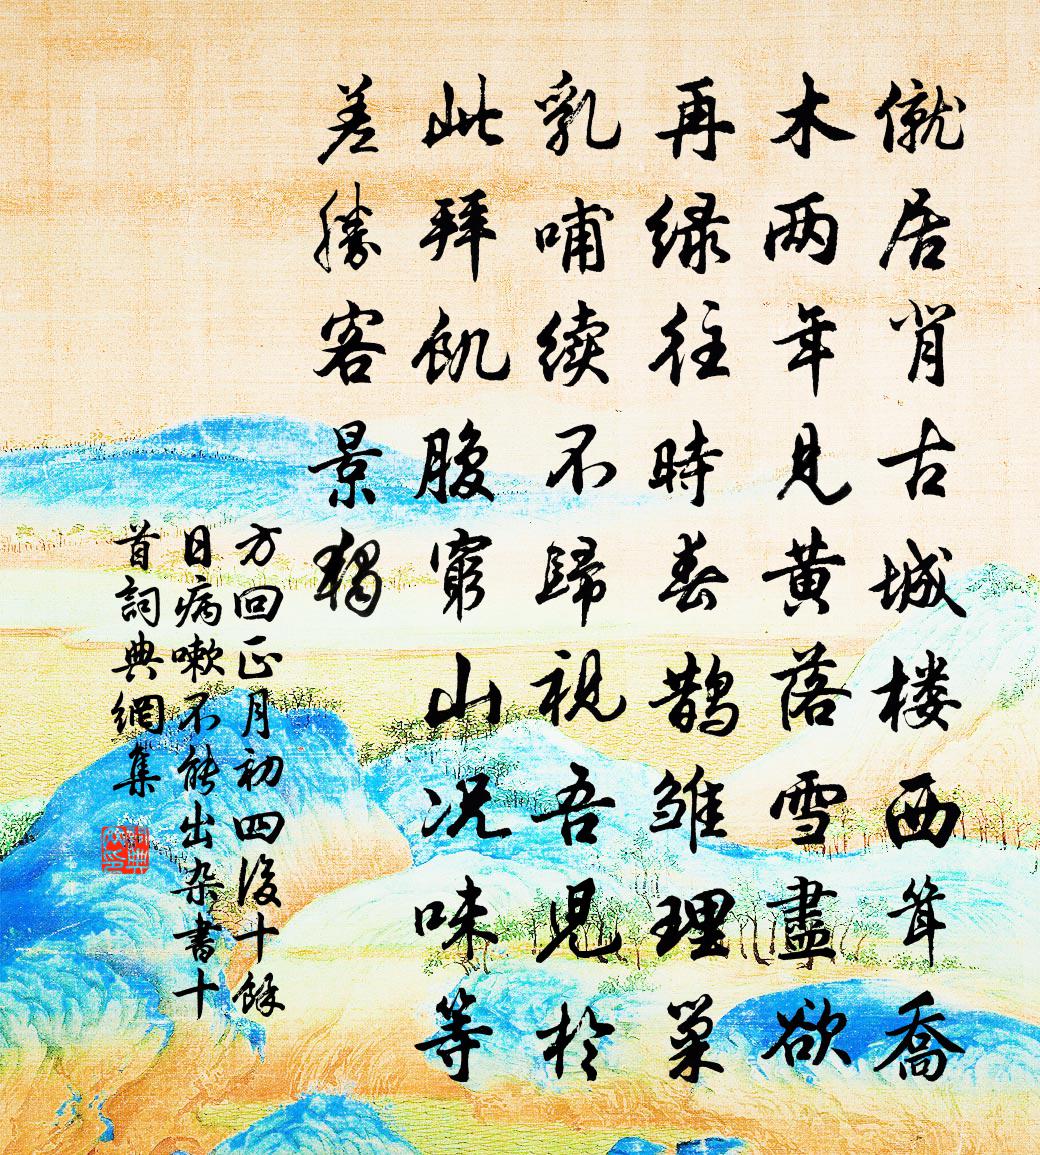 僦居背古城楼西耸喬
木两年見黄落雪盡欲
再绿往時春鹊雏理巢
乳哺续不歸視吾児於
此拜飢腹窮山况味等
差勝客景獨
方回正月初四後十餘
日病嗽不能出杂書十
首詞典網集